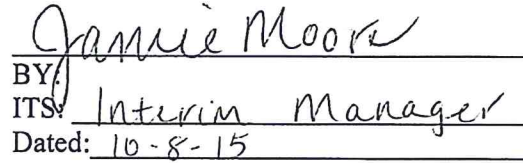 Jannie Moore
BY:
ITS: Interim Manager
Dated: 10-8-15